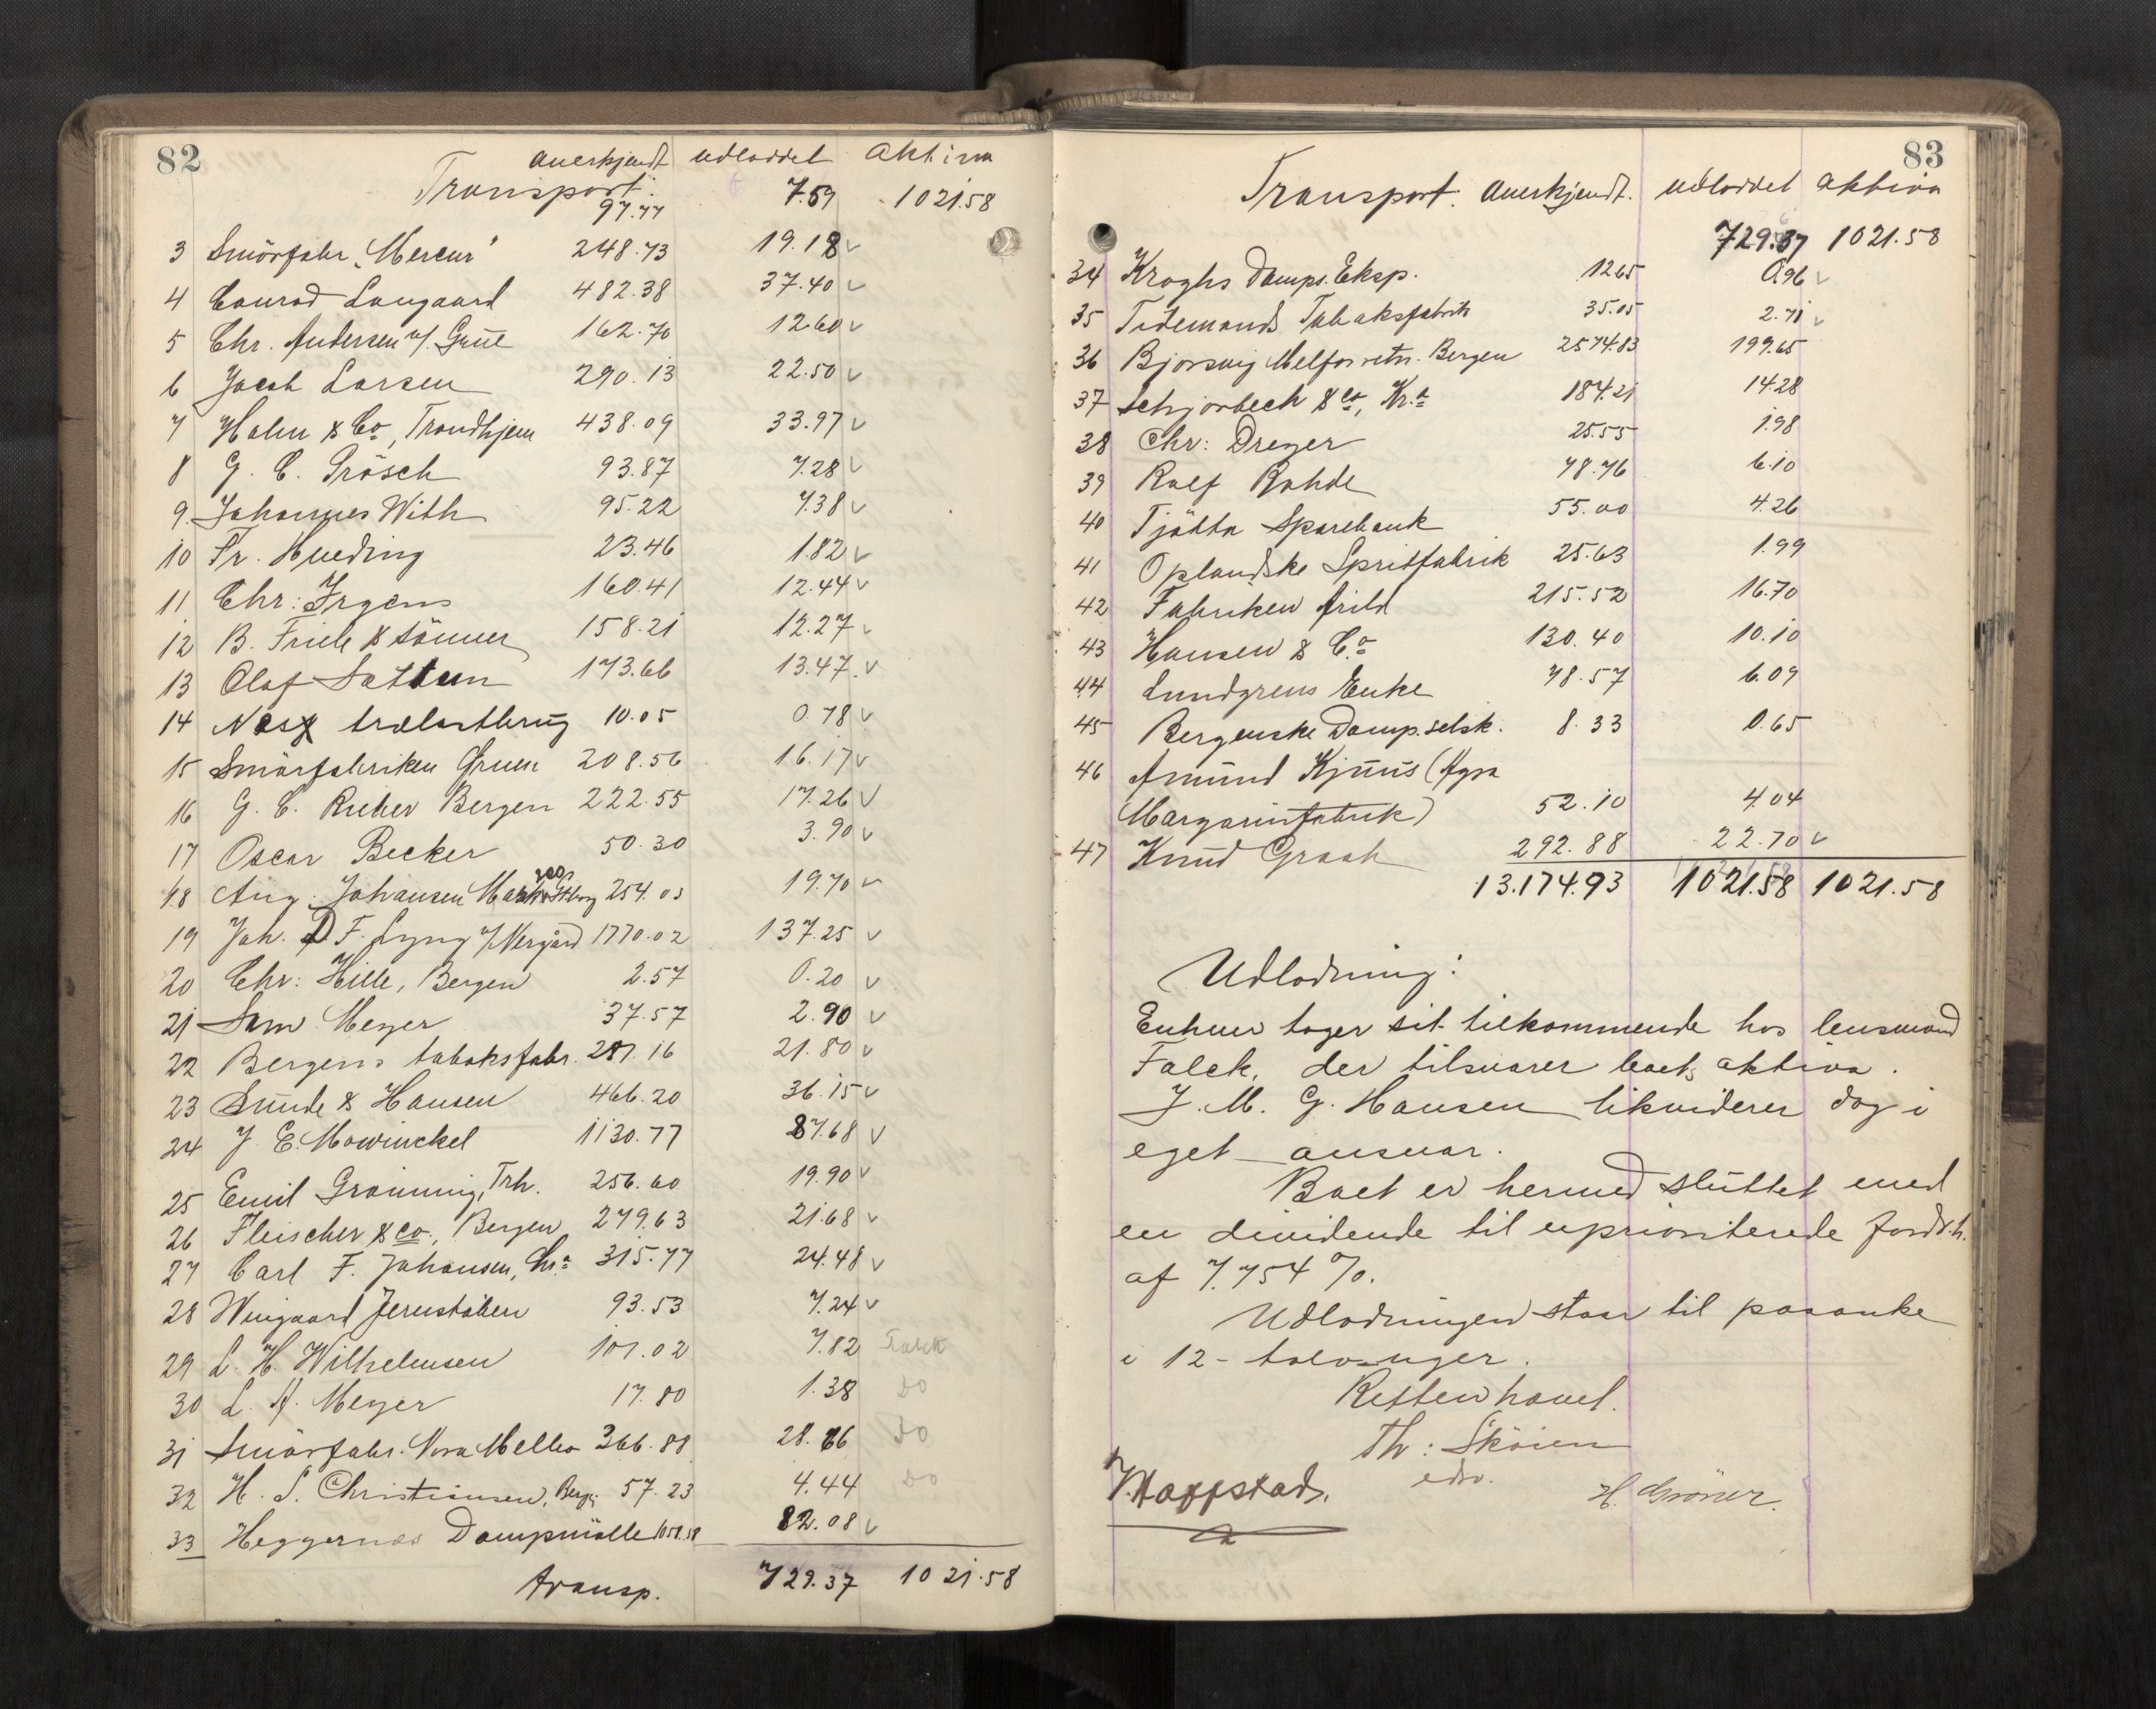 82
anerkjendt udloddet aktiva
Transport. 97.77 7.59 1021.58
3 Smörfabr. "Mercur" 248.73 19.18 ✓
4 Conrad Langaard 482.38 37.40 ✓
5 Chr. Andersen v/ Grüe 162.70 12.60 ✓
6 Jacob Larsen 290.13 22.50 ✓
7 Halm & Co, Trondhjem 438.09 33.97 ✓
8 G. C. 93.87 7.28 ✓
9 Johannes With 95.22 7.38 ✓
10 Fr. 23.46 1.82 ✓
11 Chr: Irgens 160.41 12.44 ✓
12 B. Friele & Sönner 158.21 12.27 ✓
13 Olaf Sattem 173.66 13.47 ✓
14 trælastbrug 10.05 0.78 ✓
15 Smörfabriken Gruen 208.56 16.17 ✓
16 G. C. Rieber Bergen 222.55 17.26 ✓
17 Oscar Becker 50.30 3.90 ✓
18 Aug. Johansen 254.03 19.70 ✓
19 Joh. D F. Lyng v/ Nergård 1770.02 137.25 ✓
20 Chr: Hille, Bergen 2.57 0.20 ✓
21 Sam. Meyer 37.57 2.90 ✓
22 Bergens tabaksfabr. 281.16 21.80 ✓
23 Sunde & Hansen 466.20 36.15 ✓
24 J. E. Mowinckel 1130.77 87.68 ✓
25 Emil Grönning, Trh. 256.60 19.90 ✓
26 Fleischer & co., Bergen 279.63 21.68 ✓
27 Carl F. Johansen, Chr.a 315.77 24.48 ✓
28 Wingaard Jernstöberi 93.53 7.24 ✓
29 L. H. Wilhelmsen 101.02 7.82 Falck
30 L. A. Meyer 17.80 1.38 Do
31 Smörfabr. Nora Melbo 366.88 28.66 Do
32 H. S. Christiansen, Berg. 57.23 4.44 Do
33 Heggernæs Dampmölle 1058.58 82.08 ✓
transp. 729.37 1021.58
83
Transport. anerkjendt. udloddet aktiva
729.37 1021.58
34 Kroghs Damps. Eksp. 12.65 0.96 ✓
35 Tidemands Tabaksfabrik 35.05 2.71 ✓
36 Bjorsvig Melforretn. Bergen 2574.83 199.65
37 Schjorbech & co, Kr.a 184.21 14.28
38 Chr: Dreyer 25.55 1.98
39 Rolf Rohde 78.76 6.10
40 Tjötta Sparebank 55.00 4.26
41 Oplandske Spritfabrik 25.63 1.99
42 Fabriken Arild 215.52 16.70
43 Hansen & Co 130.40 10.10
44 Lundgrens Enke 78.57 6.09
45 Bergenske Damp.selsk. 8.33 0.65
46 Amund Kjuus (Agra
Margarinfabrik) 52.10 4.04
47 Knud Graah 292.88 22.70 ✓
13.174.93 1021.58 1021.58
Udlodning:
Enhver tager sit tilkommende hos lensmand
Falck, der tilsvarer boets aktiva.
J. M. G. Hansen likviderer dog i
eget ansvar.
Boet er hermed sluttet med
en dividende til uprioriterede fordr.h.
af 7.754 %.
Udlodningen staar til paaanke
i 12 - tolv uger.
Retten hævet.
Th: Sköien
edsv.
H. Gröner.